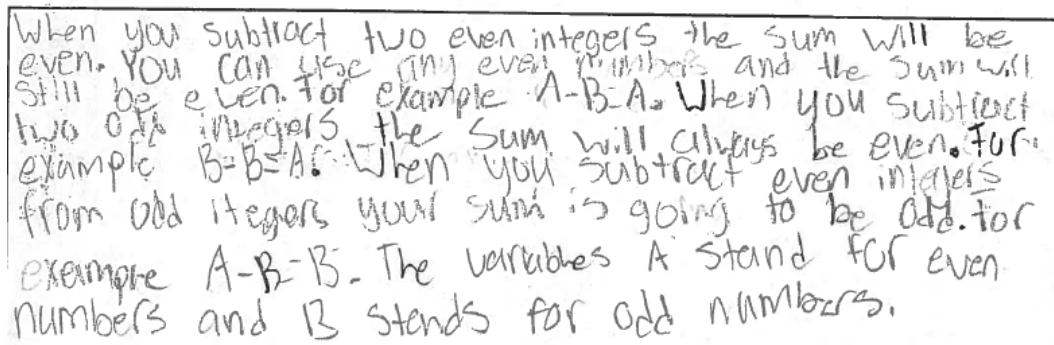 When you subtract two even integers the sum will be
even. You can use any even numbers and the sum will
still be even. For example A-B=A. When you subtract
two odd integers the sum will always be even. For
example B-B=A. When you subtract even integers
from odd itegers your sum is going to be odd. For
exeample A-B=B. The variables A stand for even
numbers and B stends for odd numbers.